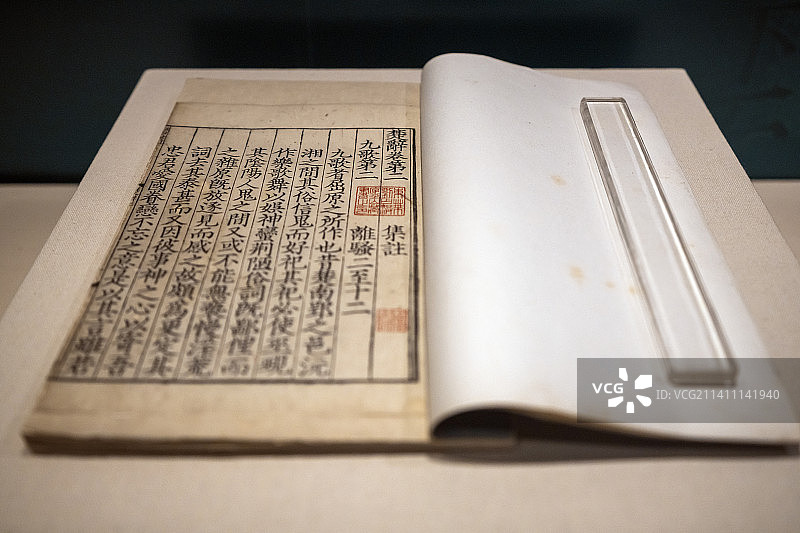 楚辭卷第二 集註
九歌第二 離騷二至十二
九歌者屈原之所作也昔楚南郢之邑沅
湘之間其俗信鬼而好祀其祀必使巫覡
作樂歌舞以娛神蠻荊陋俗詞既鄙俚而
其陰陽人鬼之間又或不能無褻慢淫荒
之雜原既放逐見而感之故頗為更定其
詞去其泰甚而又因彼事神之心以寄吾
忠君愛國眷戀不忘之意是以其言雖若
VCG
ID: VCG211411141940